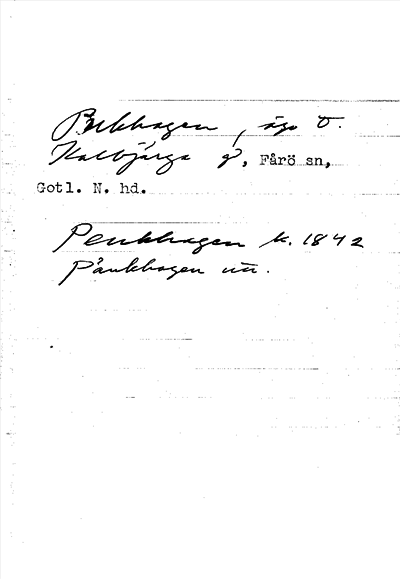 Bukkhagen, ägo t.
Kalbjärga gd, Fårö sn,
Gotl. N. hd.
Penkhagen k. 1842
Pänkhagen